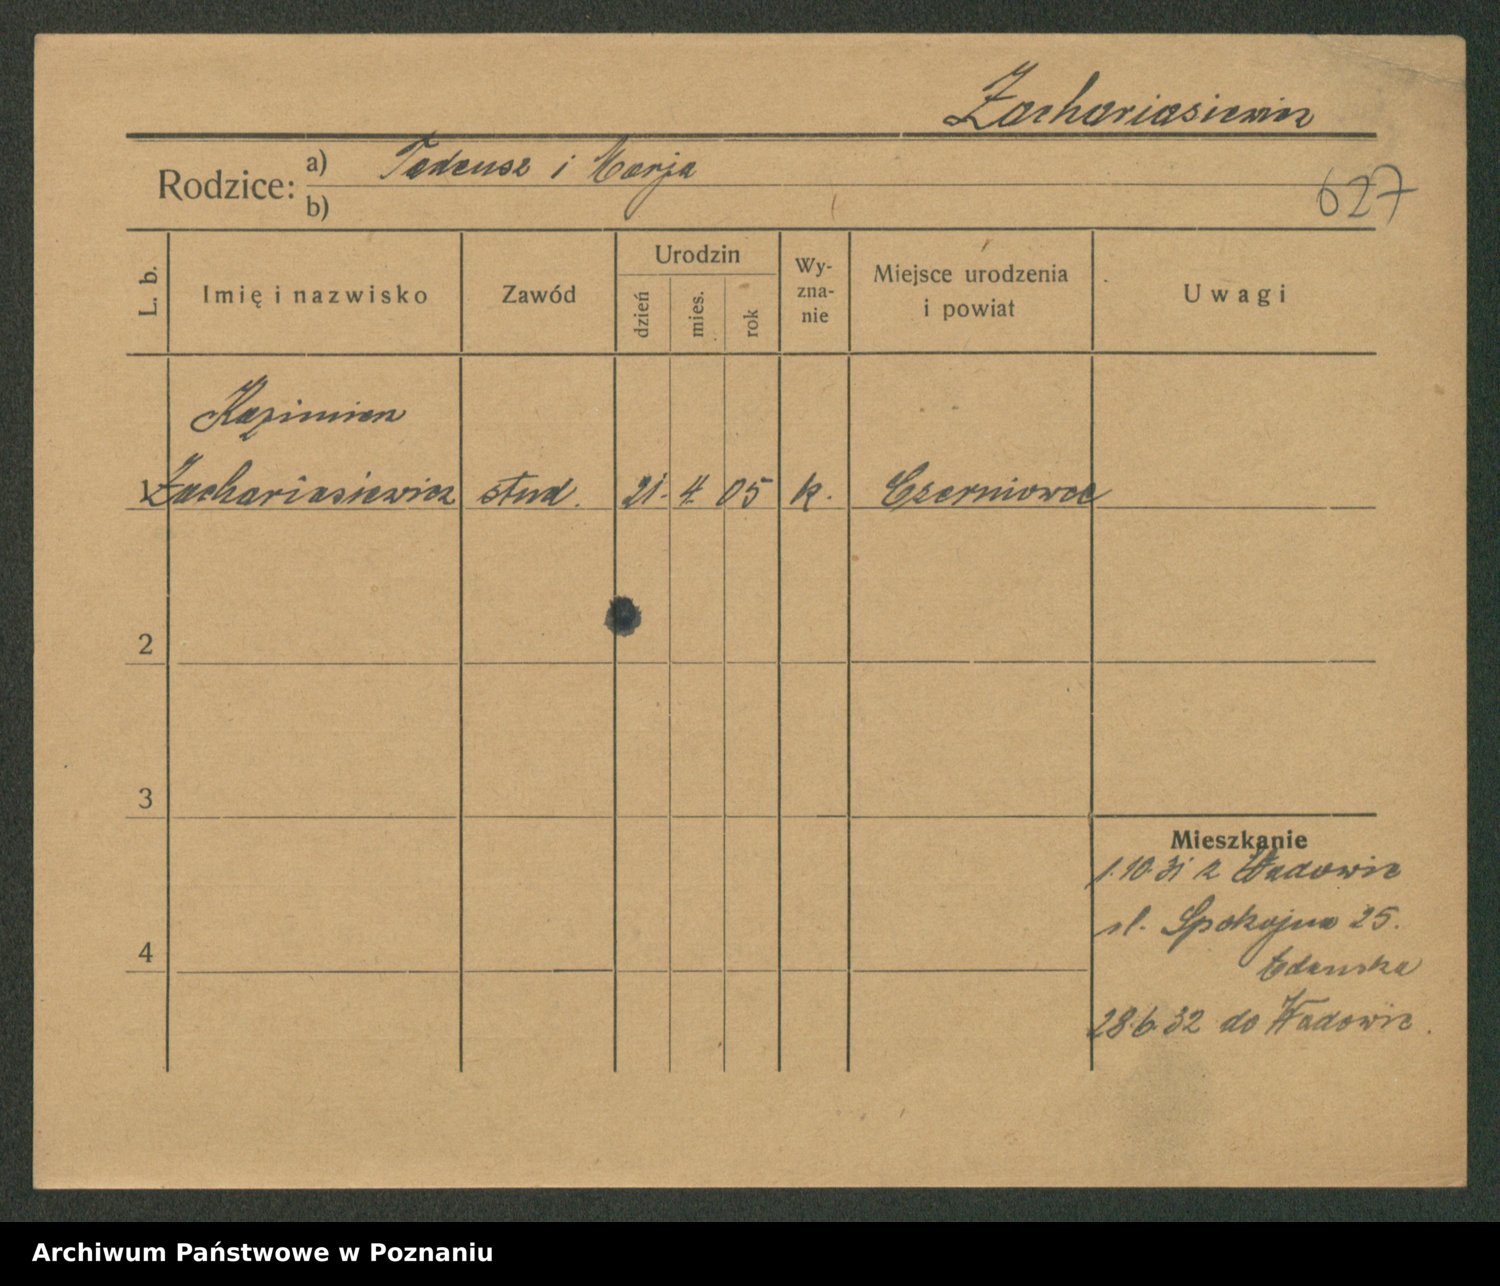 Zachariasiewicz
Rodzice: a) Tadeusz i Marja
b)
627
L. b.
Imię i nazwisko
Zawód
Urodzin
dzień
mies.
rok
Wy-
zna-
nie
Miejsce urodzenia
i powiat
Uwagi
Kazimierz
1 Zachariasiewicz stud. 21. 4. 05 k. Czerniowce
2
3
4
Mieszkanie
1.10.31 z Wadowic
ul. Spokojna 25.
28.6.32 do Wadowic.
Archiwum Państwowe w Poznaniu